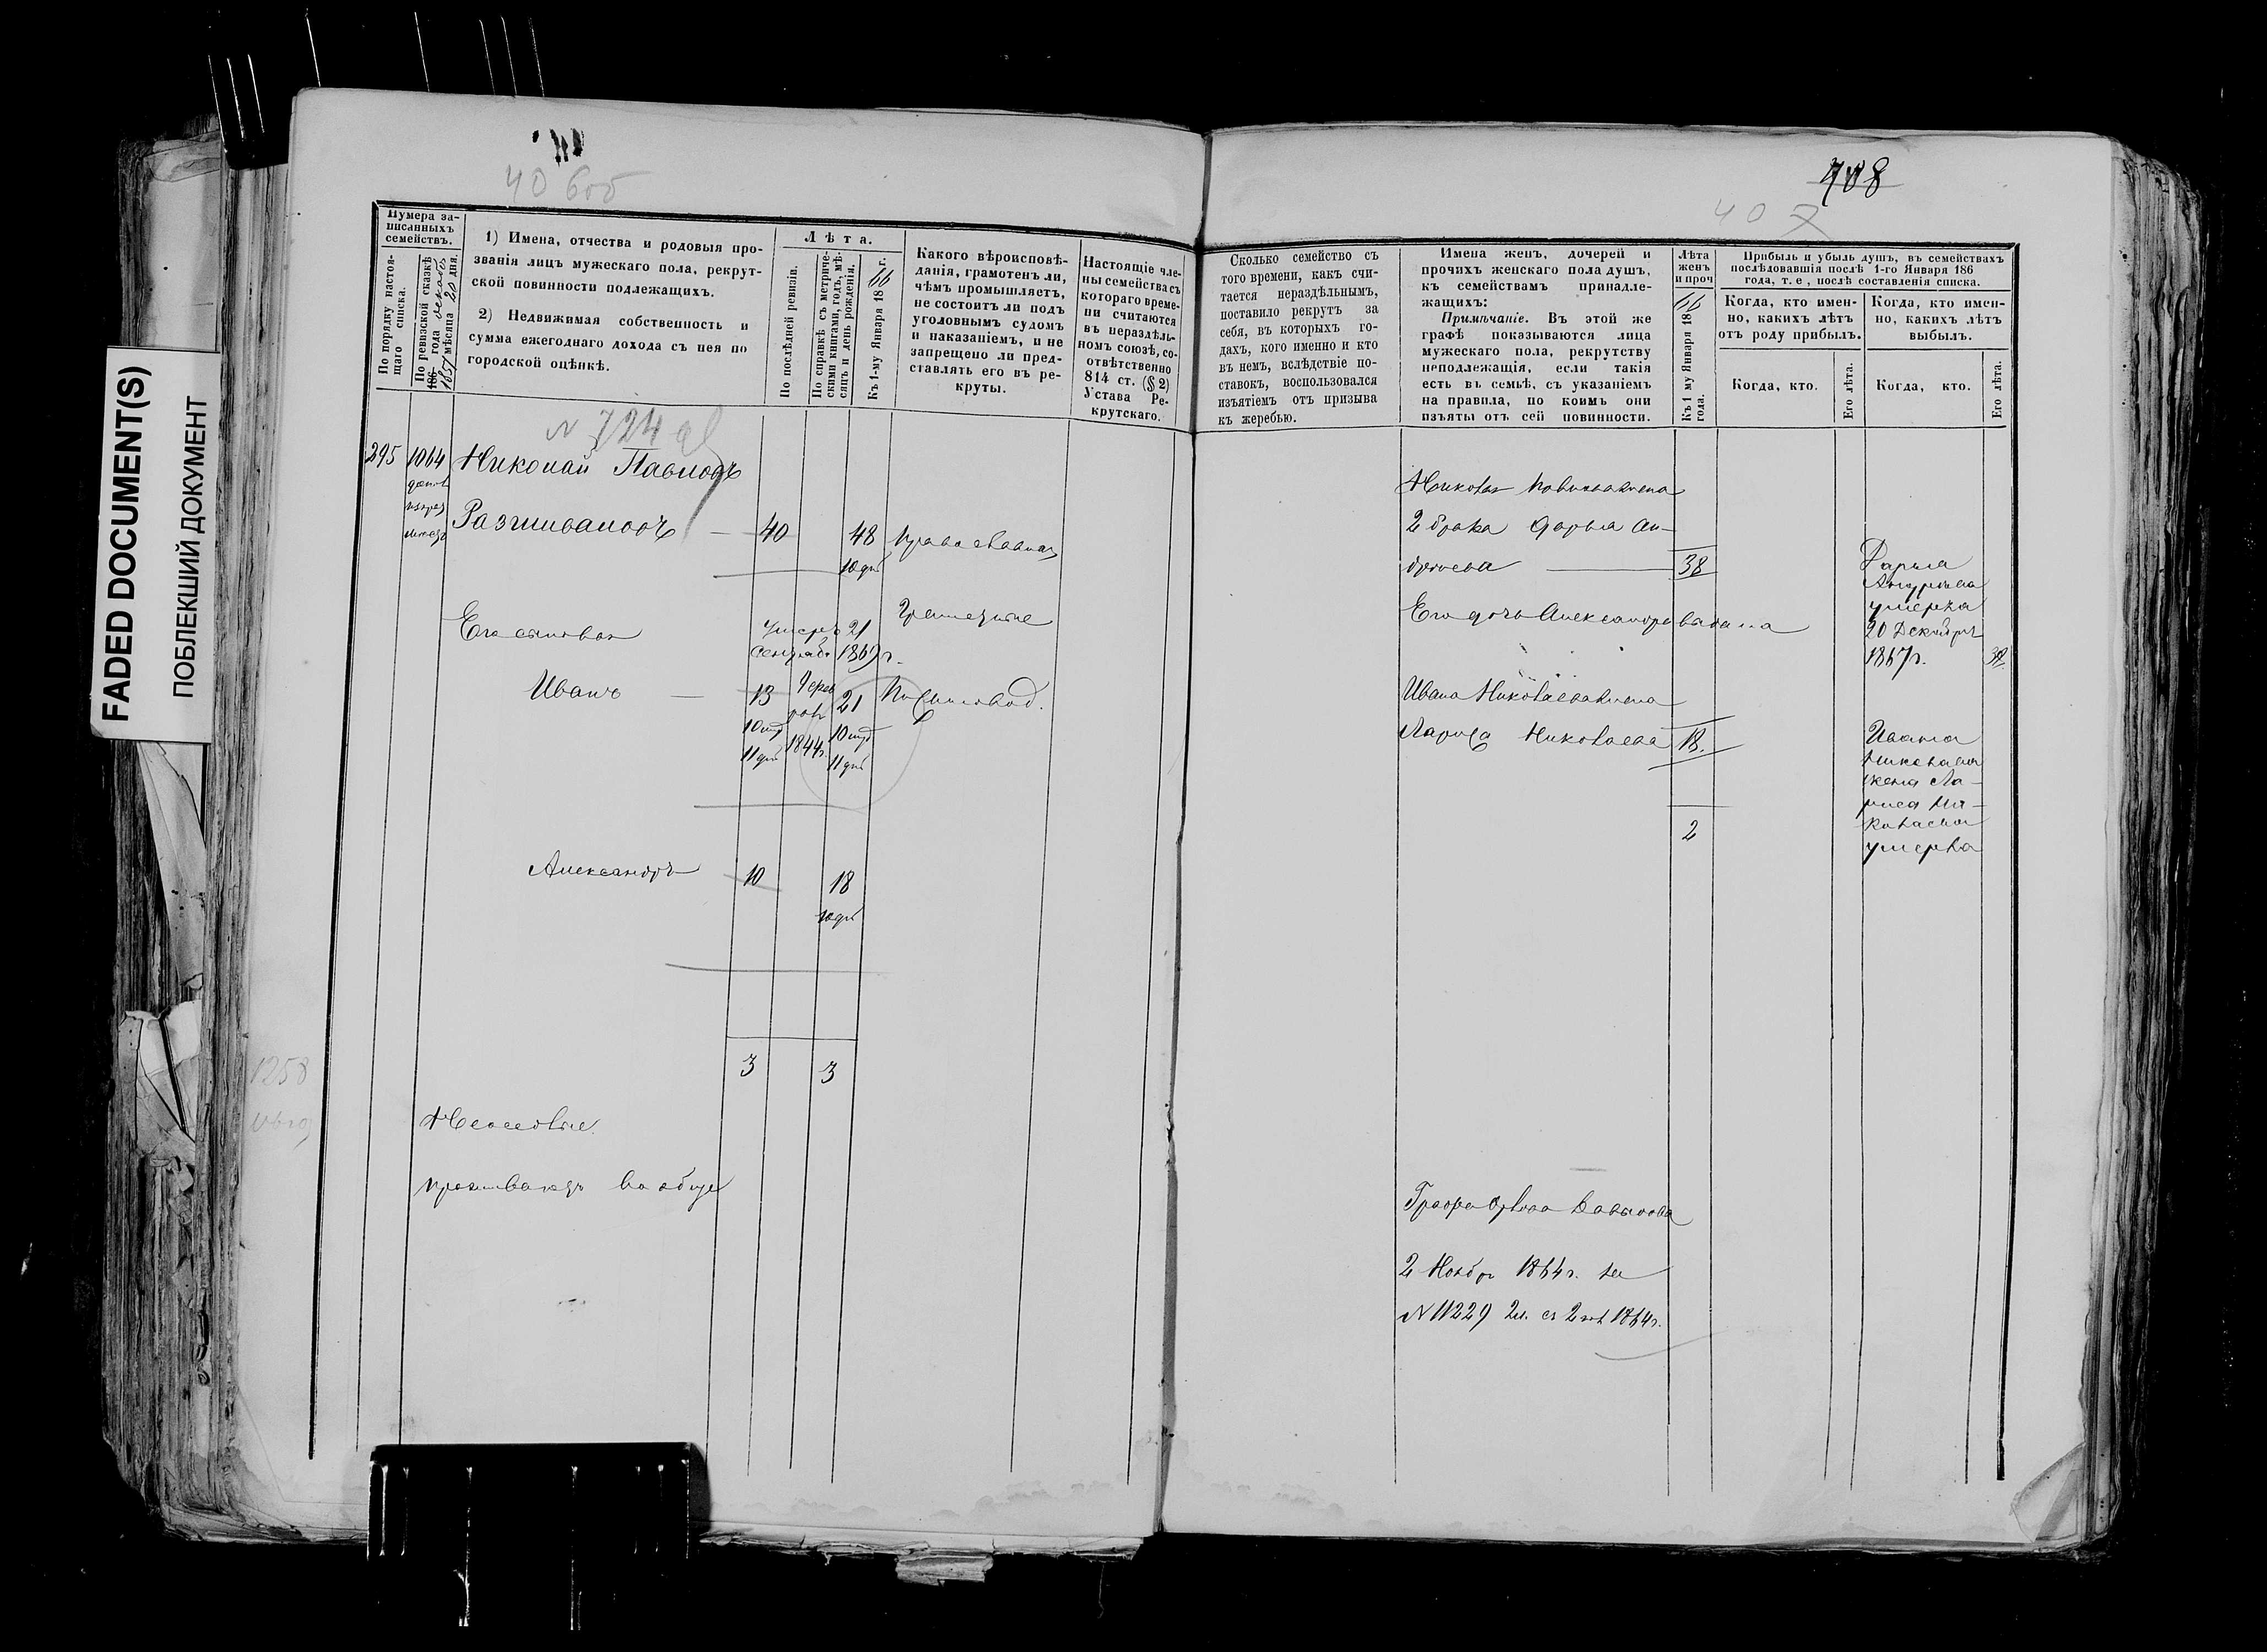 FADED DOCUMENT(S)
ПОБЛЕКШИЙ ДОКУМЕНТ
40 6об
Нумера за-
писанныхъ
семействъ.
По порядку настоя-
щаго списка.
По ревизской сказкѣ
186 года декабр
1857 мѣсяца 20 дня.
1) Имена, отчества и родовыя про-
званія лицъ мужескаго пола, рекрут-
ской повинности подлежащихъ.
2) Недвижимая собственность и
сумма ежегоднаго дохода съ нея по
городской оцѣнкѣ.
Лѣта.
По послѣдней ревизіи.
По справкѣ съ метриче-
скими книгами, годъ, мѣ-
сяцъ и день рожденія.
Къ 1-му Января 1866 г.
Какого вѣроисповѣ-
данія, грамотенъ ли,
чѣмъ промышляетъ,
не состоитъ ли подъ
уголовнымъ судомъ
и наказаніемъ, и не
запрещено ли пред-
ставлять его въ ре-
круты.
Настоящіе чле-
ны семейства съ
котораго време-
ни считаются
въ нераздѣль-
номъ союзѣ, со-
отвѣтственно
814 ст. (§ 2)
Устава Ре-
крутскаго.
N 724
295 1064 Николай Павловъ
Разживаловъ — 40 48 Православнаго
10 дн
Его сыновья
Умеръ 21
Сентября 1869 г.
Иванъ — 13 Февр 21
10 мц 1844 г. 10 мц
11 дн 11 дн
Александръ 10 18
10 дн
3 3
1258
Неоседлые
проживаютъ
708
40 7
Сколько семейство съ
того времени, какъ счи-
тается нераздѣльнымъ,
поставило рекрутъ за
себя, въ которыхъ го-
дахъ, кого именно и кто
въ немъ, вслѣдствіе по-
ставокъ, воспользовался
изъятіемъ отъ призыва
къ жеребью.
Имена женъ, дочерей и
прочихъ женскаго пола душъ,
къ семействамъ принадле-
жащихъ:
Примѣчаніе. Въ этой же
графѣ показываются лица
мужескаго пола, рекрутству
неподлежащія, если такія
есть въ семьѣ, съ указаніемъ
на правила, по коимъ они
изъяты отъ сей повинности.
Лѣта
женъ
и проч
Къ 1 му Января 1866
года.
Прибыль и убыль душъ, въ семействахъ
послѣдовавшія послѣ 1-го Января 186
года, т. е , послѣ составленія списка.
Когда, кто имен-
но, какихъ лѣтъ
отъ роду прибылъ.
Когда, кто имен-
но, какихъ лѣтъ
выбылъ.
Когда, кто.
Его лѣта.
Когда, кто.
Его лѣта.
Николая Павлова жена
2 брака Дарья Ан-
дреева — 38
Его дочь Александра выдана
Ивана Николаева жена
Лариса Николаева 18.
2
Дарья
Андреева
умерла
20 Декабря
1867 г. 38
Ивана
Николаева
жена Ла-
риса Ни-
колаева
умерла
Графа Орлова Давыдова
2 Ноябр 1864 г. за
N 11229